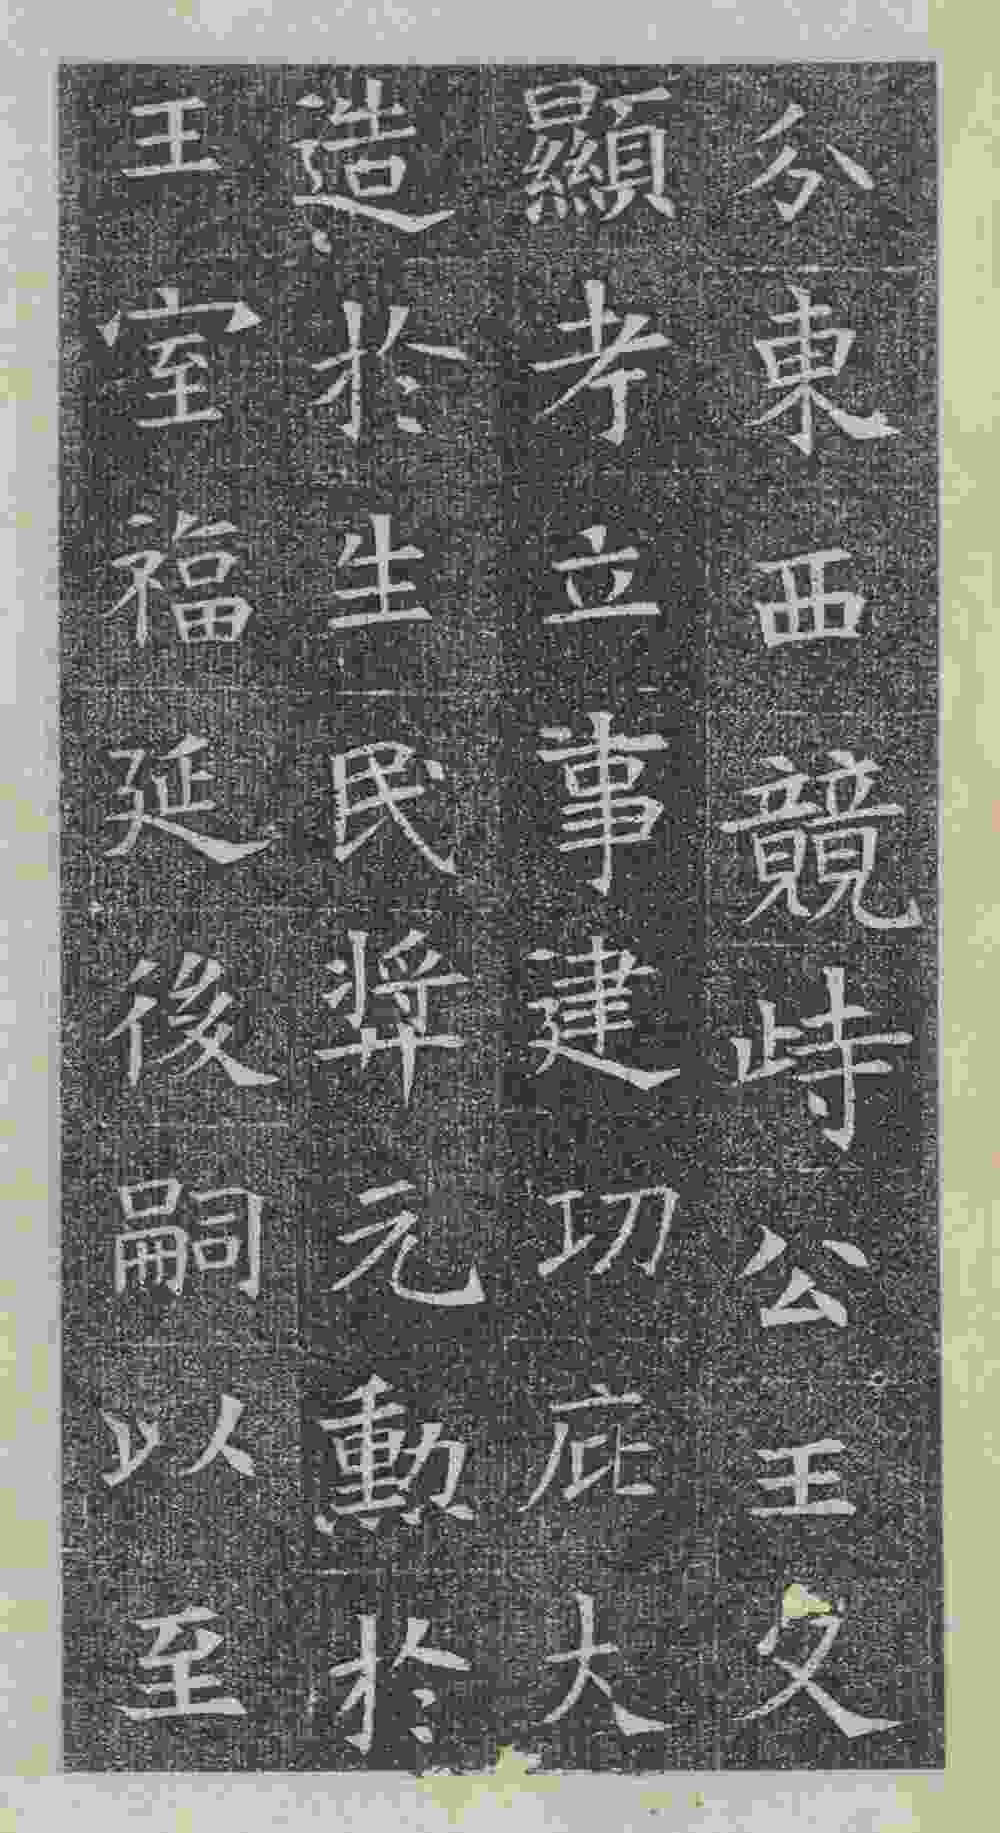 分東西競峙公王文
顯考立事建功庇大
造於生民奬元勳於
王室福延後嗣以至